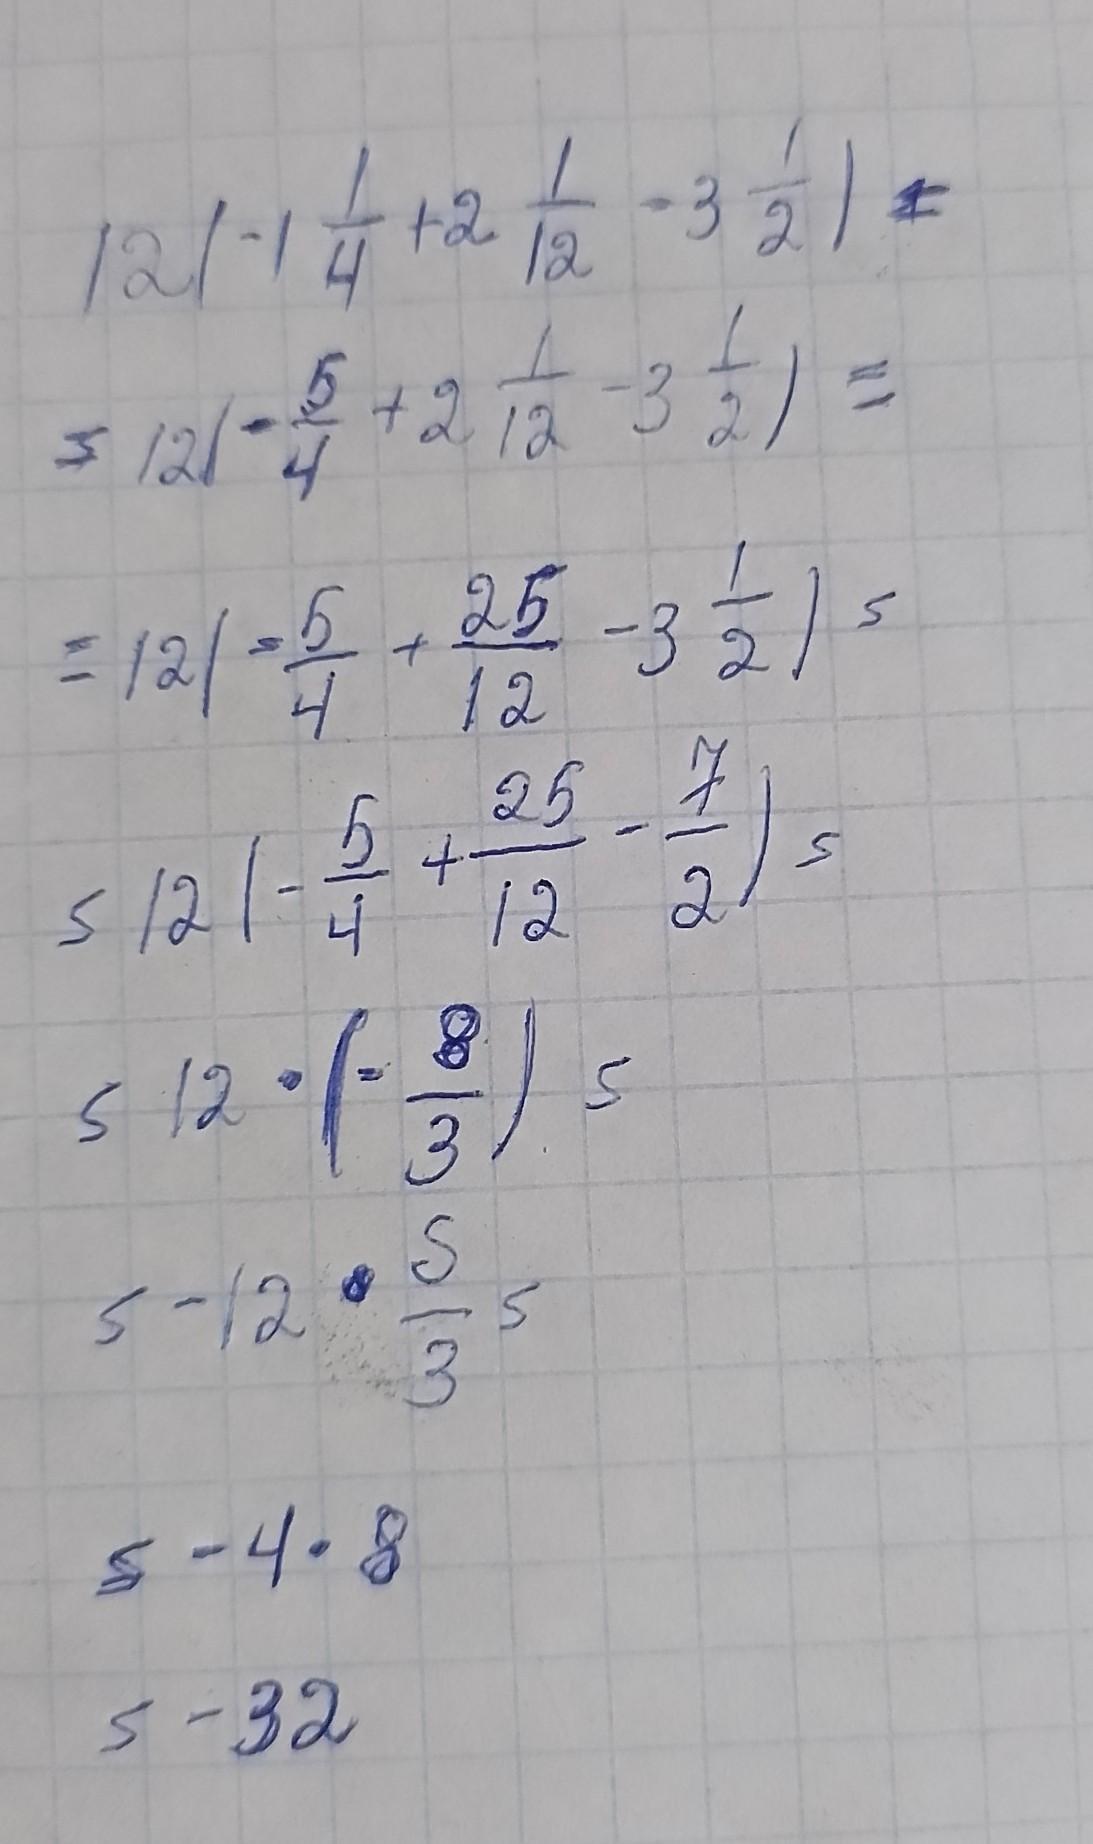 12(-1 1/4 + 2 1/12 - 3 1/2) =
= 12(-5/4 + 2 1/12 - 3 1/2) =
= 12(-5/4 + 25/12 - 3 1/2) =
= 12(-5/4 + 25/12 - 7/2) =
= 12 · (-8/3) =
= -12 · 5/3 =
= -4 · 8
= -32